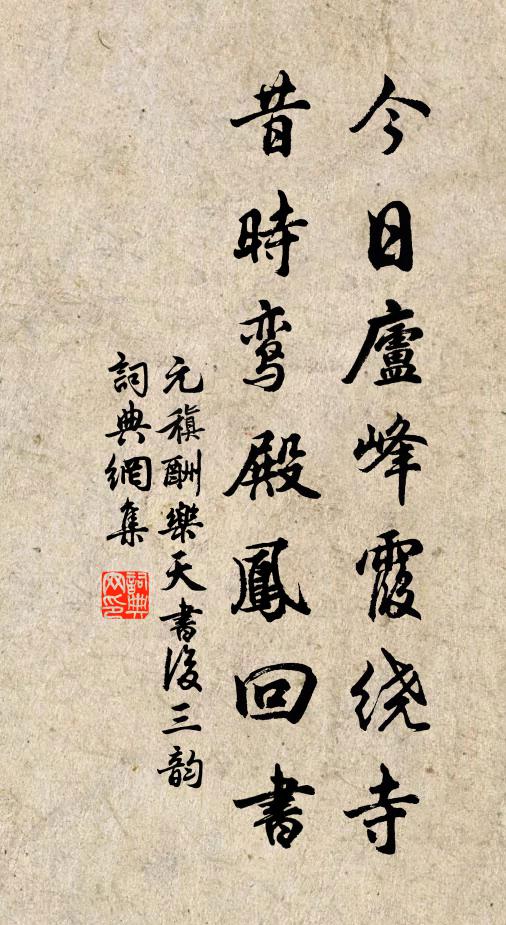 今日廬峰霞绕寺
昔時鸾殿鳳回書
元稹酬樂天書後三韵
詞典網集
詞典網印